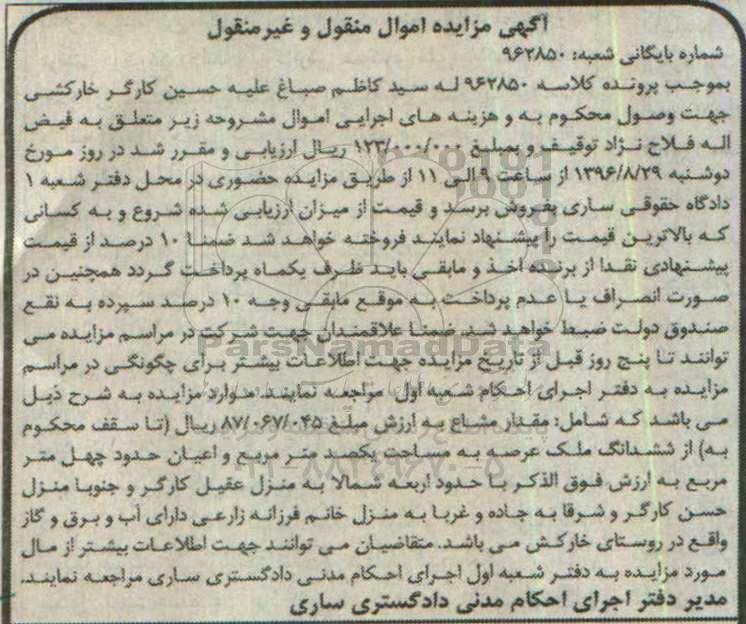 آگهی مزایده اموال منقول و غیرمنقول
شماره بایگانی شعبه: ۹۶۲۸۵۰
بموجب پرونده کلاسه ۹۶۲۸۵۰ له سید کاظم صباغ علیه حسین کارگر خارکشی
جهت وصول محکوم به و هزینه های اجرایی اموال مشروحه زیر متعلق به فیض
اله فلاح نژاد توقیف و بمبلغ ۱۲۳/۰۰۰/۰۰۰ ریال ارزیابی و مقرر شد در روز مورخ
دوشنبه ۱۳۹۶/۸/۲۹ از ساعت ۹ الی ۱۱ از طریق مزایده حضوری در محل دفتر شعبه ۱
دادگاه حقوقی ساری بفروش برسد و قیمت از میزان ارزیابی شده شروع و به کسانی
که بالاترین قیمت را پیشنهاد نمایند فروخته خواهد شد ضمنا ۱۰ درصد از قیمت
پیشنهادی نقدا از برنده اخذ و مابقی باید ظرف یکماه پرداخت گردد همچنین در
صورت انصراف یا عدم پرداخت به موقع مابقی وجه ۱۰ درصد سپرده به نقع
صندوق دولت ضبط خواهد شد. ضمنا علاقمندان جهت شرکت در مراسم مزایده می
توانند تا پنج روز قبل از تاریخ مزایده جهت اطلاعات بیشتر برای چگونگی در مراسم
مزایده به دفتر اجرای احکام شعبه اول مراجعه نمایند. موارد مزایده به شرح ذیل
می باشد که شامل: مقدار مشاع به ارزش مبلغ ۸۷/۰۶۷/۰۴۵ ریال (تا سقف محکوم
به) از ششدانگ ملک عرصه به مساحت یکصد متر مربع و اعیان حدود چهل متر
مربع به ارزش فوق الذکر با حدود اربعه شمالا به منزل عقیل کارگر و جنوبا منزل
حسن کارگر و شرقا به جاده و غربا به منزل خانم فرزانه زارعی دارای آب و برق و گاز
واقع در روستای خارکش می باشد. متقاضیان می توانند جهت اطلاعات بیشتر از مال
مورد مزایده به دفتر شعبه اول اجرای احکام مدنی دادگستری ساری مراجعه نمایند.
مدیر دفتر اجرای احکام مدنی دادگستری ساری
ParsNamadData